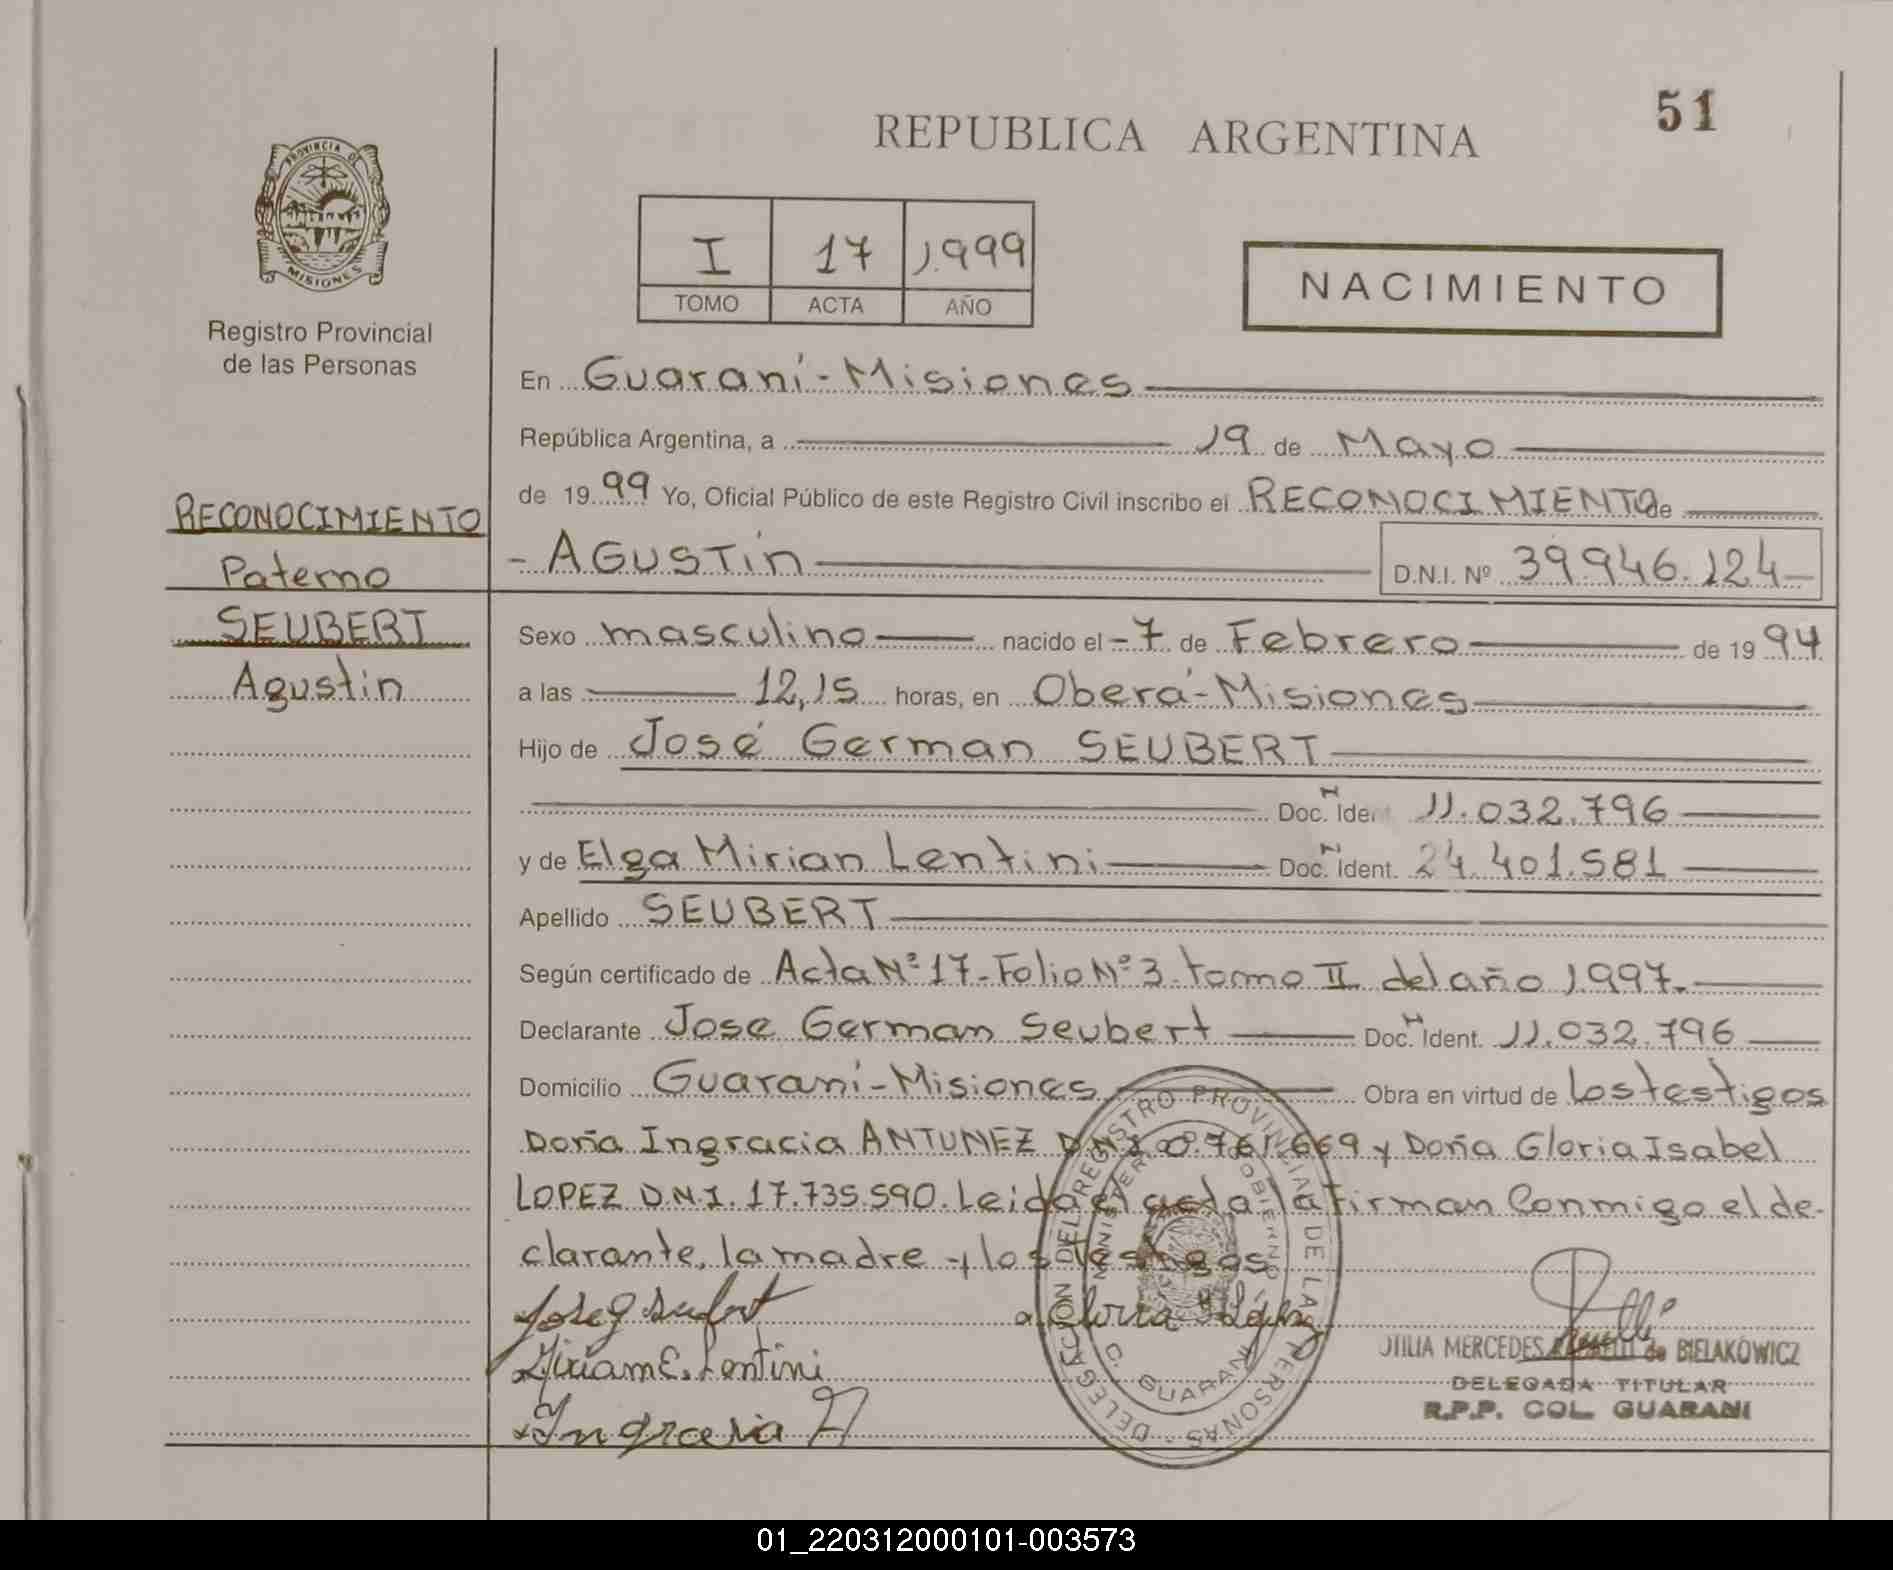 51
REPUBLICA ARGENTINA
PROVINCIA DE
MISIONES
Registro Provincial
de las Personas
I 17 1.999
TOMO ACTA AÑO
NACIMIENTO
RECONOCIMIENTO
Paterno
SEUBERT
Agustin
En Guaraní-Misiones
República Argentina, a 19 de Mayo
de 1999 Yo, Oficial Público de este Registro Civil inscribo el RECONOCIMIENTO de
- AGUSTín
D.N.I. Nº 39.946.124
Sexo masculino nacido el -7 de Febrero de 1994
a las 12,15 horas, en Oberá-Misiones
Hijo de José German SEUBERT
Doc. Ident 11.032.796
y de Elga Mirian Lentini Doc. Ident. 24.401.581
Apellido SEUBERT
Según certificado de Acta Nº 17-Folio Nº 3-tomo II del año 1.997.
Declarante Jose German Seubert Doc. Ident. 11.032.796
Domicilio Guaraní-Misiones Obra en virtud de los testigos
Doña Ingracia ANTUNEZ D.N.I. 761.669 y Doña Gloria Isabel
LOPEZ D.N.I. 17.735.590. Leida el acta la firman Conmigo el de-
clarante, la madre y los testigos
Jose G Seubert
Gloria I López
Miriam E. Lentini
Ingracia A
DELEGACION DEL REGISTRO PROVINCIAL DE LAS PERSONAS
MINISTERIO GOBIERNO
C. GUARANI
JULIA MERCEDES de BIELAKOWICZ
DELEGADA TITULAR
R.P.P. COL. GUARANI
01_220312000101-003573